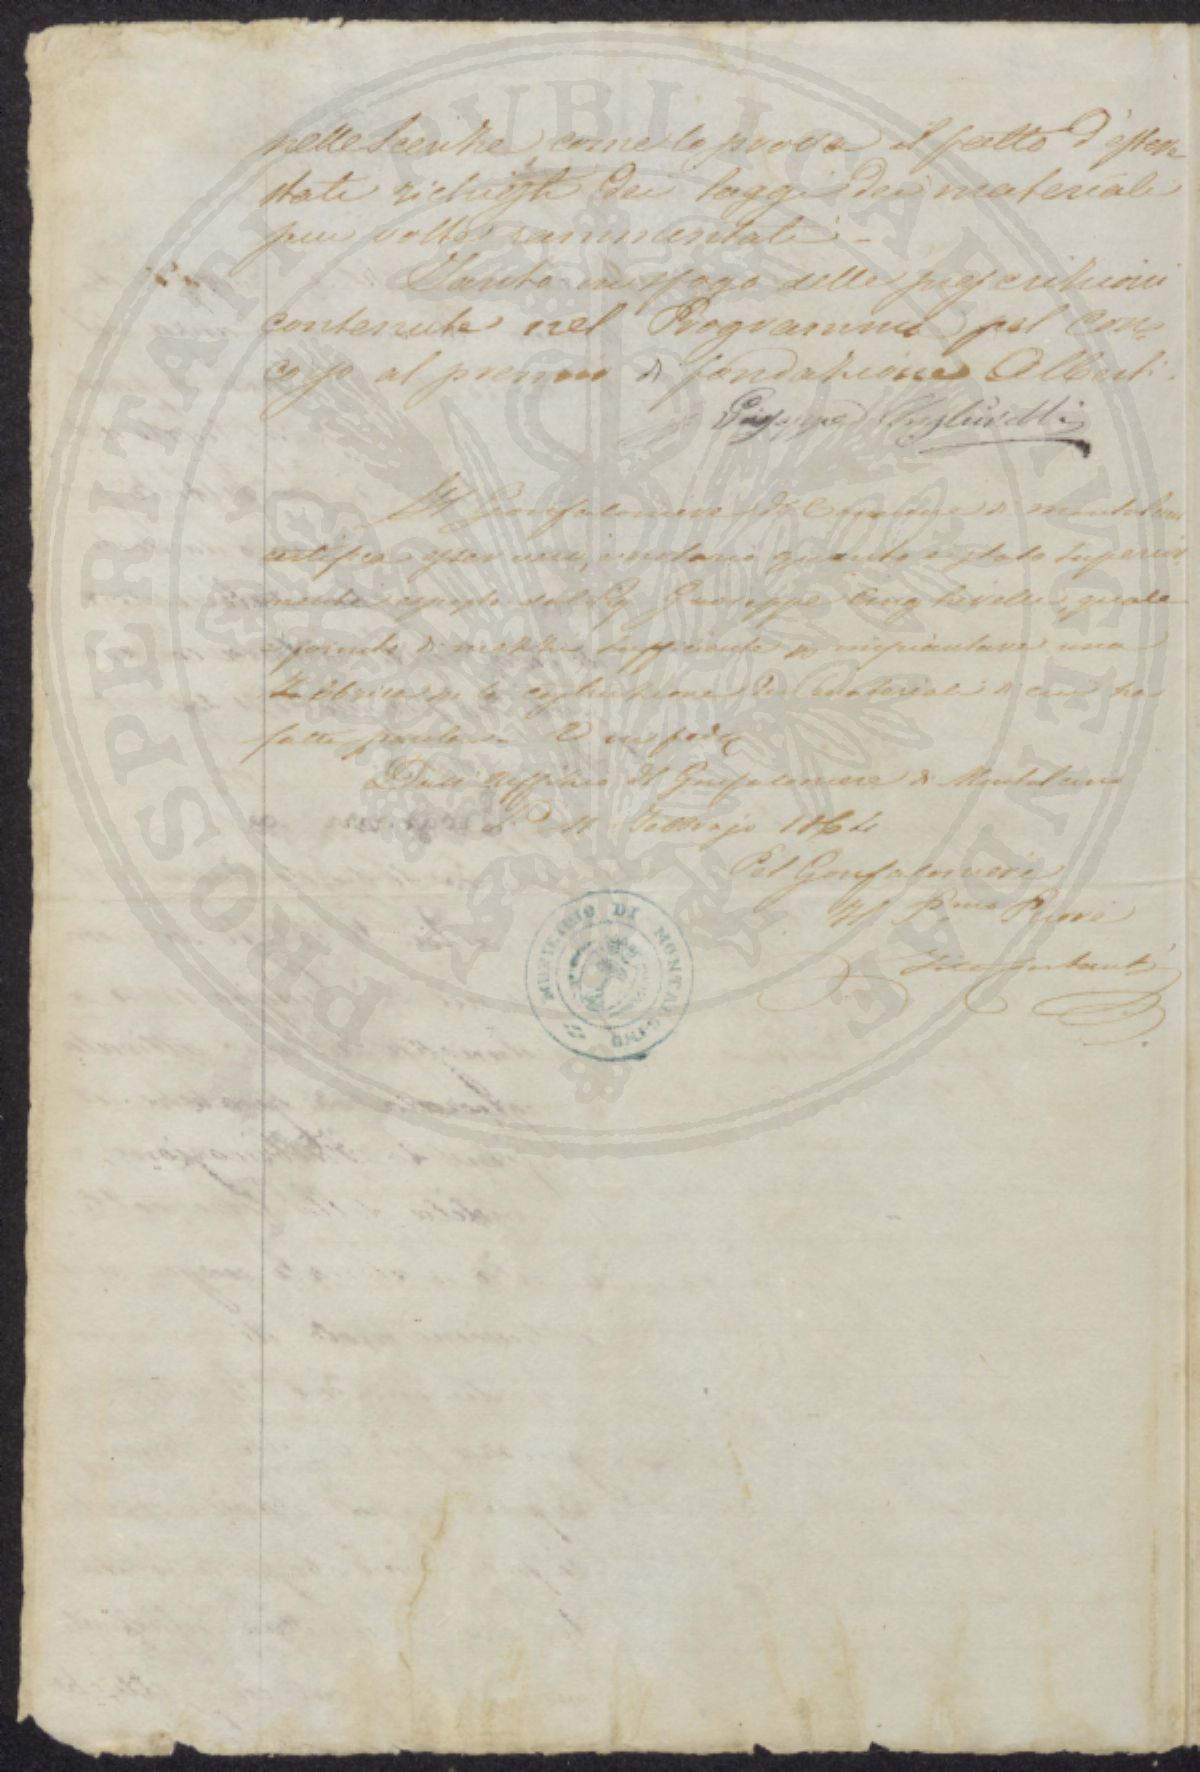 nelle Scienze come lo prova il fatto d'esser
stati richiesti dei saggi dei materiali
piu volte rammentati. -
Tanto in sfogo delle prescrizioni
contenute nel Programma pel con=
corso al premio di fondazione Alberti.
Giuseppe
Il Gonfaloniere del Comune di Montalcino
certifica esser vero, quanto è stato superior
mente esposto dal Sig Giuseppe quale
è fornito di mezzi sufficienti per impiantare una
Fabbrica per la costruzione dei materiali di cui ha
fatto parola in fede
Dall' Uffizio del Gonfaloniere di Montalcino
Li 11 Febbrajo 1864
Pel Gonfaloniere
Il Pmo Priore
MUNICIPIO DI MONTALCINO
PROSPERITATI PUBLICAE AUGENDAE